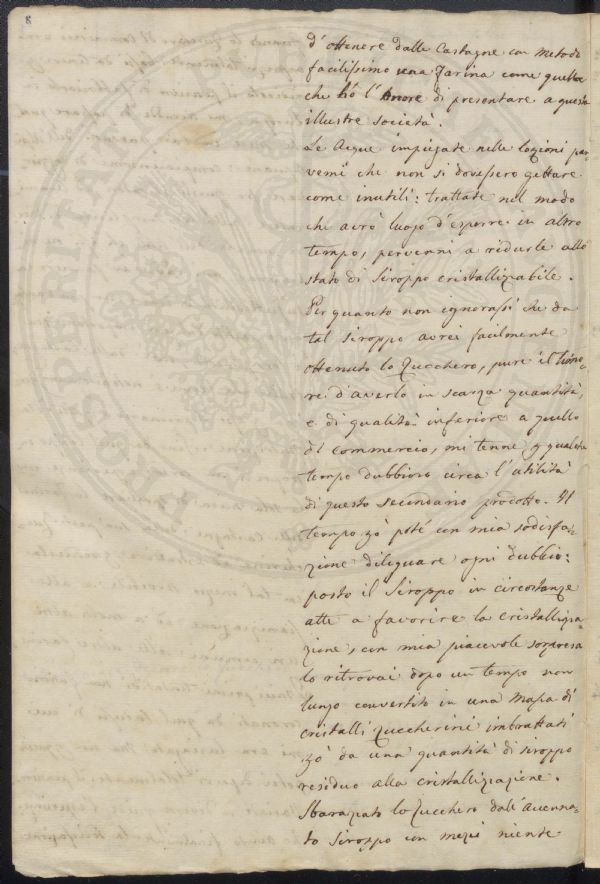 8
d'ottenere dalle Castagne con metodo
facilissimo una farina come quella
che hò l'Onore di presentare a questa
illustre società.
Le Acque impiegate nelle lozioni par-
vemi che non si dovessero gettare
come inutili: trattate nel modo
che avrò luogo d'esporre in altro
tempo, pervenni a ridurle allo
stato di Siroppo cristallizzabile.
Per quanto non ignorassi che da
tal siroppo avrei facilmente
ottenuto lo Zucchero, pure il timo-
re d'averlo in scarza quantità,
e di qualità inferiore a quello
di commercio, mi tenne p qualche
tempo dubbioso circa l'utilità
di questo secondario prodotto. Il
tempo pò poté con mia sodisfa-
zione diliguare ogni dubbio:
posto il Siroppo in circostanze
atte a favorire la cristallizza-
zione, con mia piacevole sorpresa
lo ritrovai dopo un tempo non
lungo convertito in una Massa di
cristalli Zuccherini imbrattati
pò da una quantità di siroppo
residuo alla cristallizzazione.
Sbarazzato lo Zucchero dall'accenna-
to Siroppo con mezzi niente